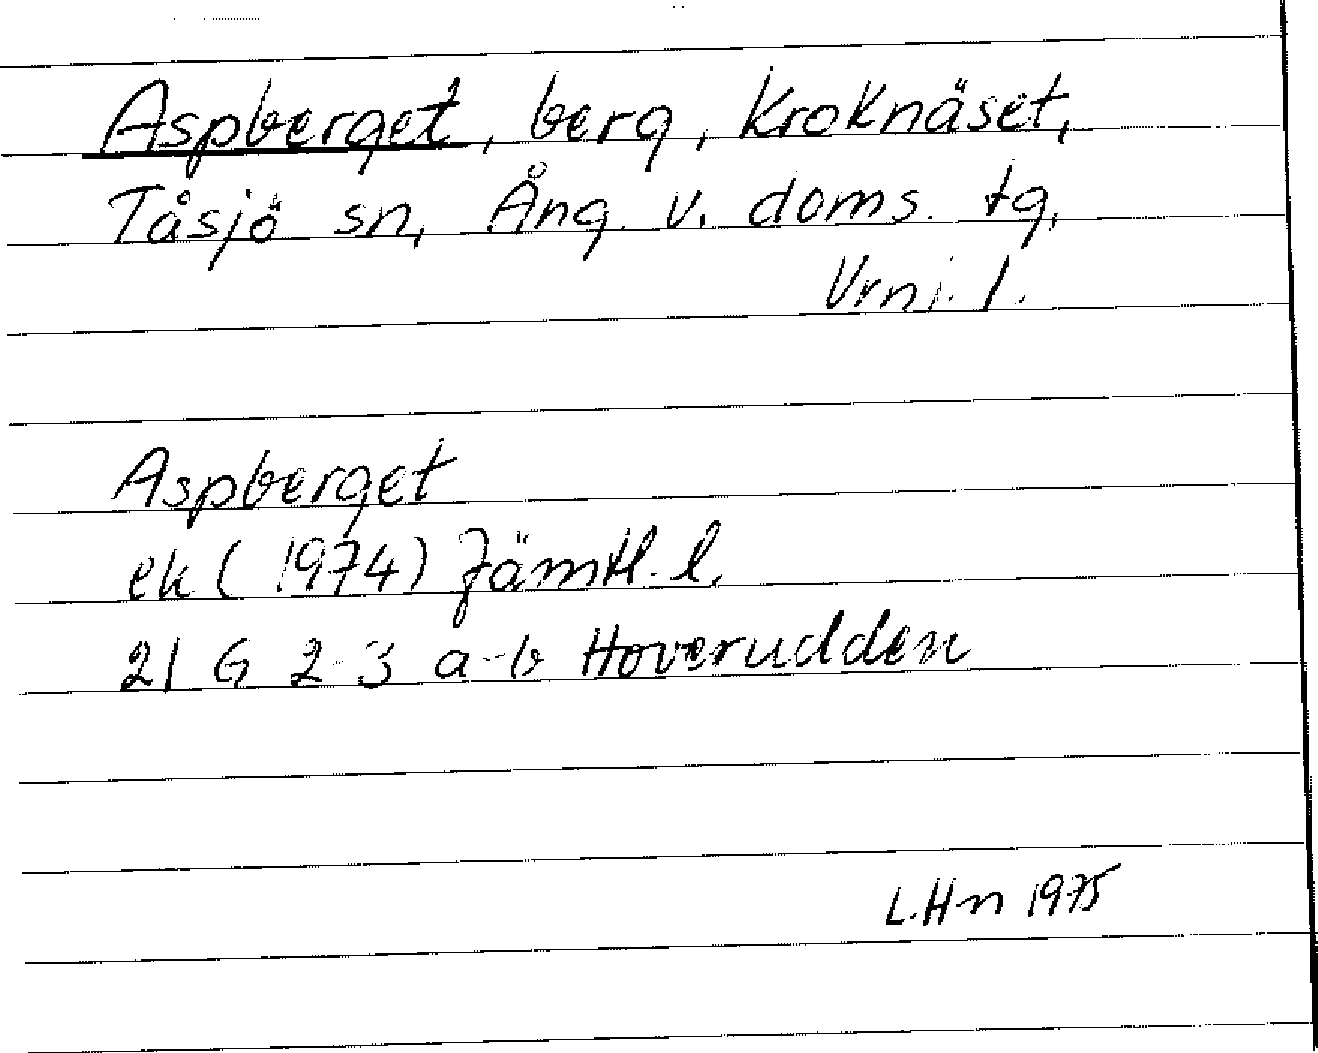 Aspberget, berg, Kroknäset,
Tåsjö sn, Ång. v. doms. tg,
Vrnj. l.
Aspberget
ek (1974) Jämtl. l.
21 G 2-3 a-b Hoverudden
L.Hn 1975